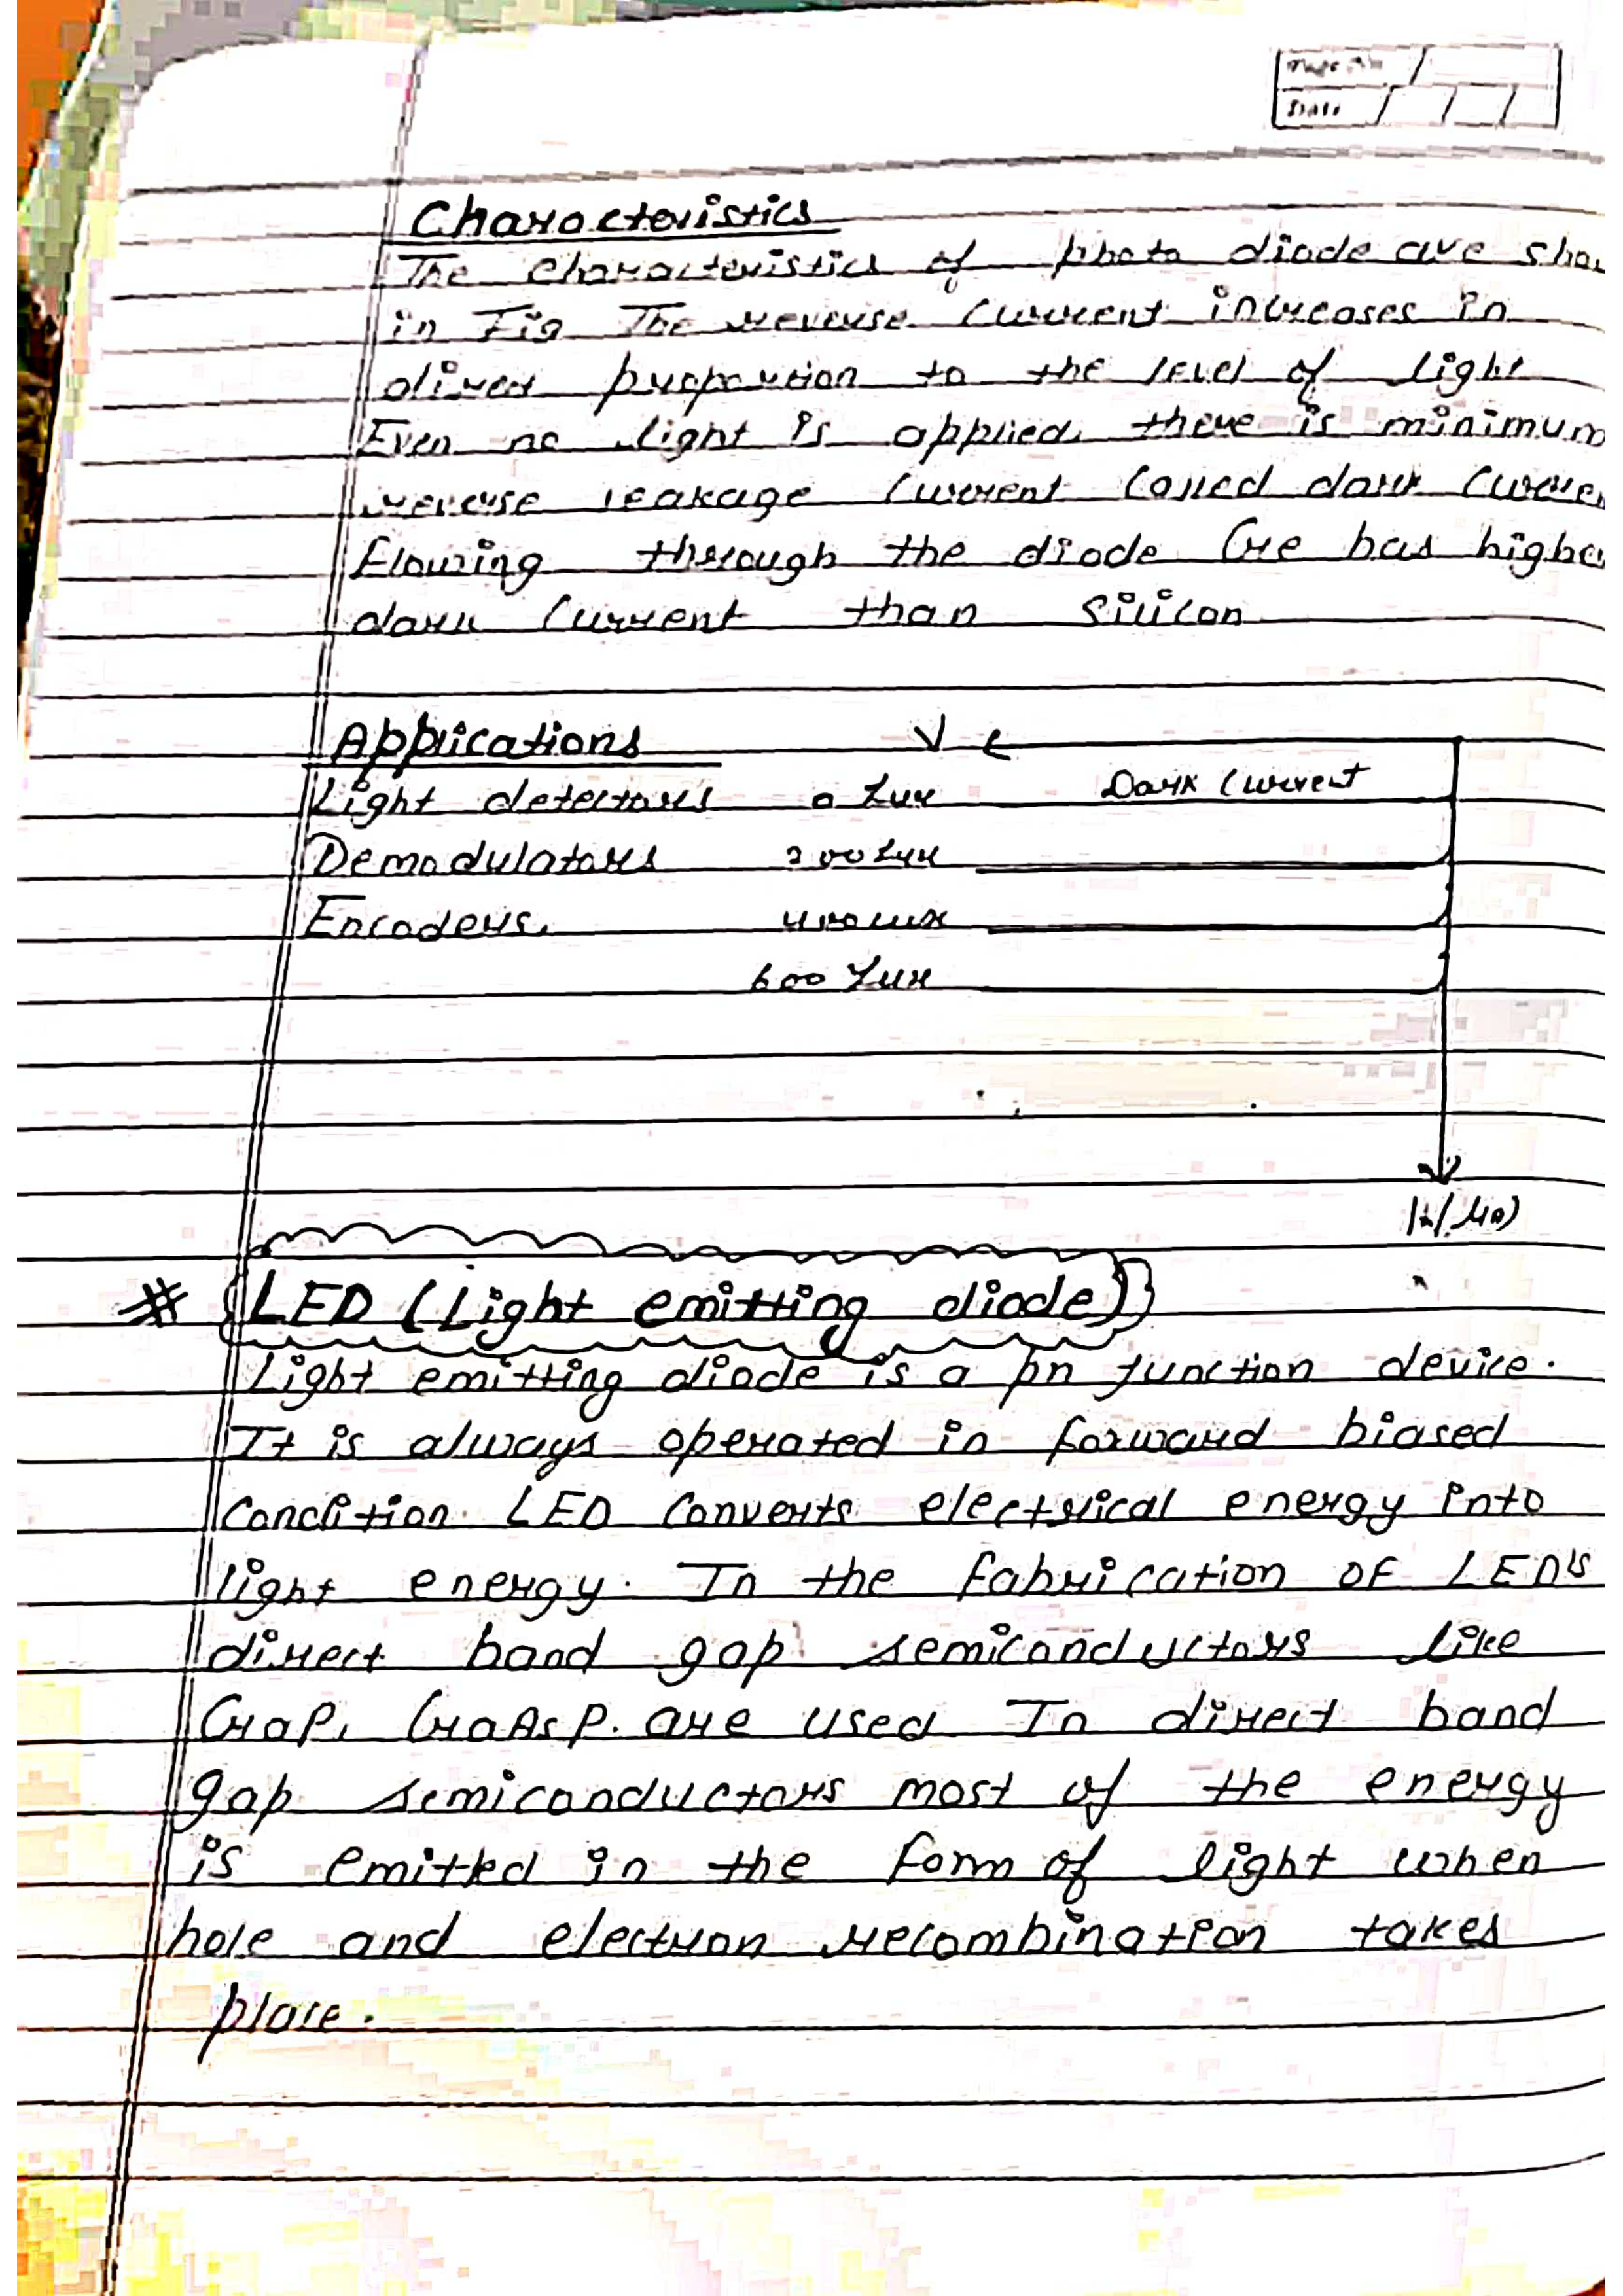 Page No
Date
Characteristics
The characteristics of photo diode are
in Fig The reverse current increases in
direct proportion to the level of light
Even no light is applied, there is minimum
reverse leakage current called dark
flowing through the diode Ge has
dark current than silicon
Applications V
Light detectors 0 Lux Dark current
Demodulators 200 Lux
Encoders. 400 Lux
600 Lux
* LED (Light emitting diode)
Light emitting diode is a pn junction device.
It is always operated in forward biased
condition. LED converts electrical energy into
light energy. In the fabrication OF LED's
direct band gap semiconductors like
GaP, GaAsP. are used In direct band
gap semiconductors most of the energy
is emitted in the form of light when
hole and electron recombination takes
place.